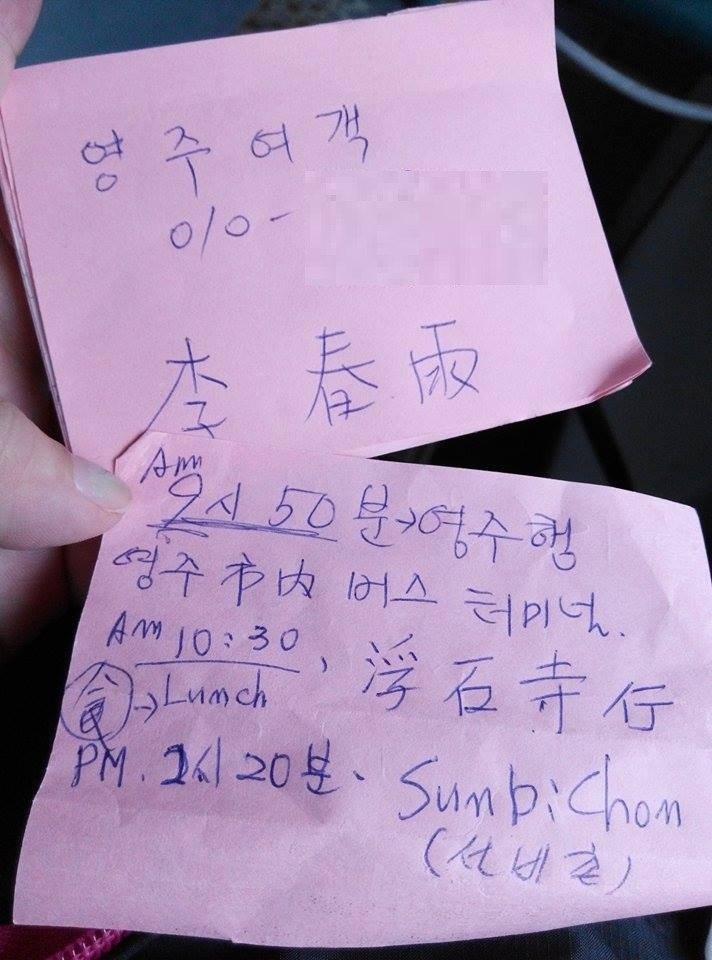 영주여객
010-
李春雨
Am
9시 50분→영주행
영주市内 버스 터미널.
Am 10:30, 浮石寺行
食→Lunch
PM. 1시 20분. Sunbichon
(선비촌)